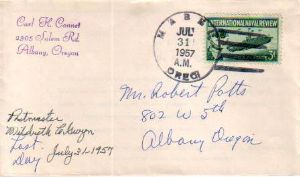 Carl H. Connet
2305 Salem Rd.
Albany, Oregon
MABEL
JUL
31
1957
A.M.
OREG
INTERNATIONAL NAVAL REVIEW
3¢
Mr. Robert Potts
802 W 5th
Albany Oregon
Postmaster
Last
Day July 31-1957